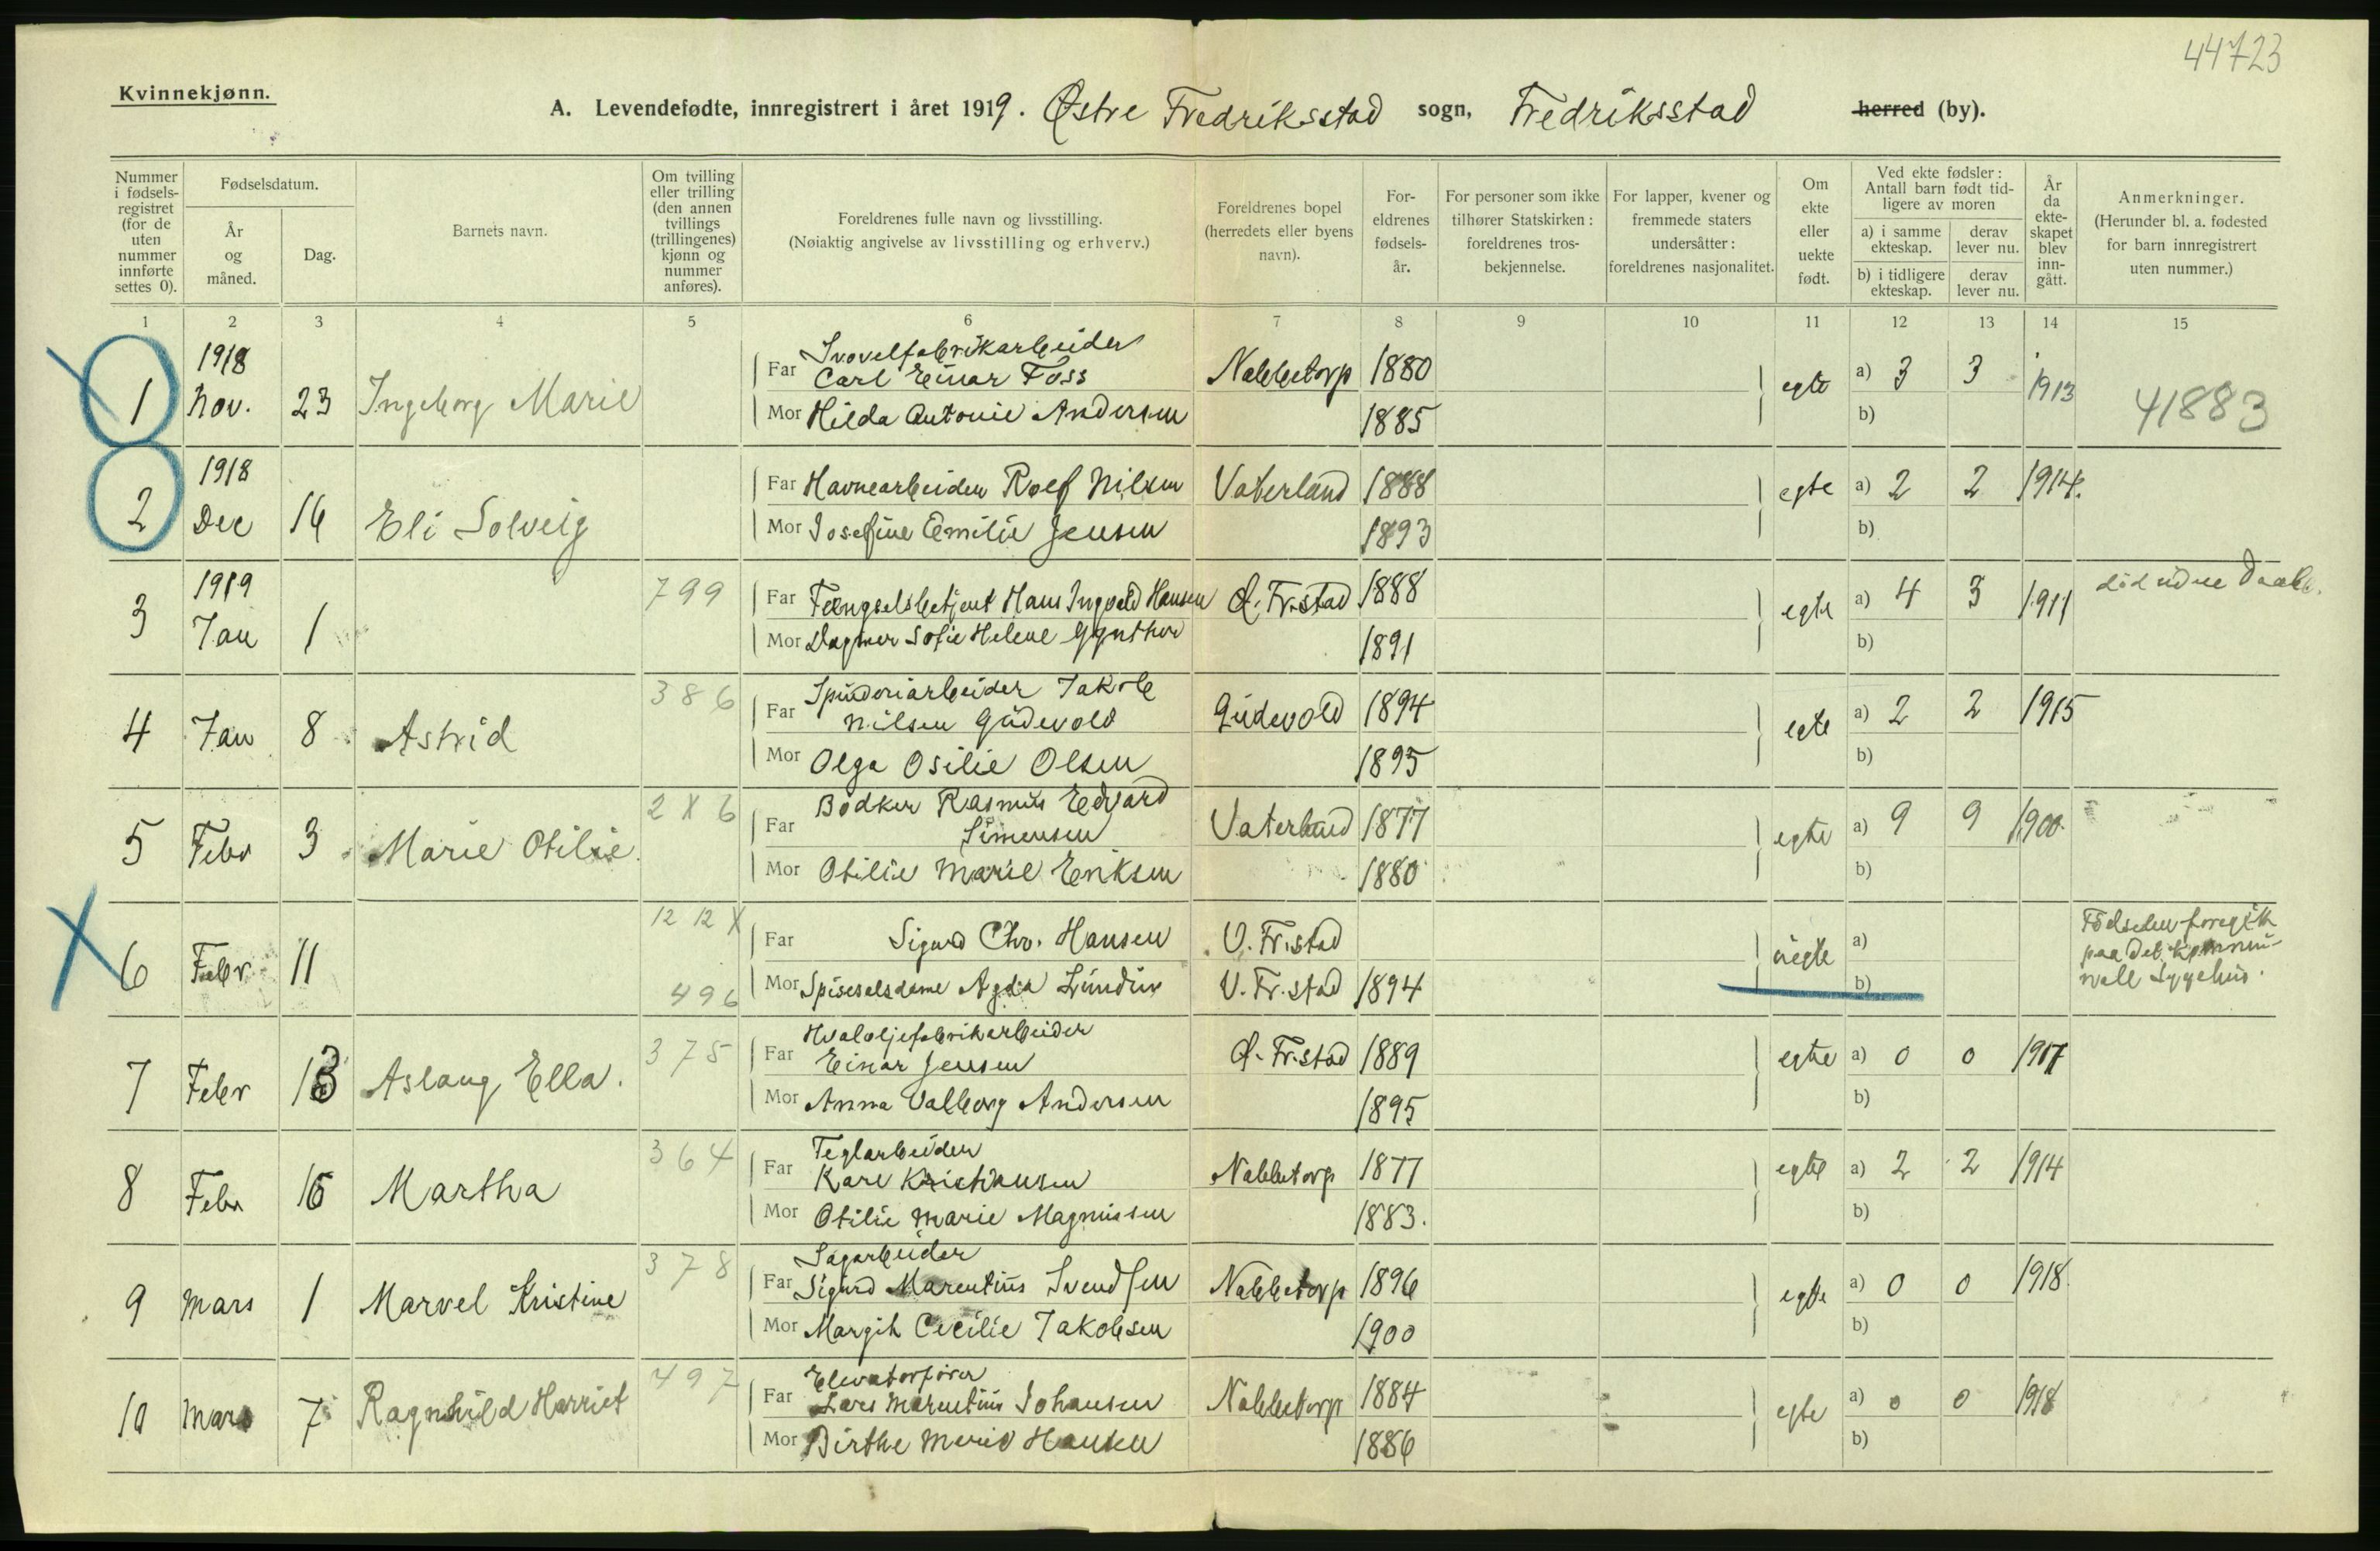 44723
Kvinnekjønn.
A. Levendefødte, innregistrert i året 1919. Østre Fredriksstad sogn, Fredriksstad herred (by).
Nummer i fødselsregistret (for de uten nummer innførte settes 0).
Fødselsdatum.
År og måned.
Dag.
Barnets navn.
Om tvilling eller trilling (den annen tvillings (trillingenes) kjønn og nummer anføres).
Foreldrenes fulle navn og livsstilling.
(Nøiaktig angivelse av livsstilling og erhverv.)
Foreldrenes bopel (herredets eller byens navn).
Foreldrenes fødselsår.
For personer som ikke tilhører Statskirken: foreldrenes trosbekjennelse.
For lapper, kvener og fremmede staters undersåtter: foreldrenes nasjonalitet.
Om ekte eller uekte født.
Ved ekte fødsler: Antall barn født tidligere av moren
a) i samme ekteskap. derav lever nu.
b) i tidligere ekteskap. derav lever nu.
År da ekteskapet blev inngått.
Anmerkninger.
(Herunder bl. a. fødested for barn innregistrert uten nummer.)
1 2 3 4 5 6 7 8 9 10 11 12 13 14 15
1918
Svovelfabrikarbeider
1 Nov. 23 Ingeborg Marie Far Carl Einar Foss Nabbetorp 1880 egte a) 3 3 1913 41883
Mor Hilda Antonie Andersen 1885 b)
1918
2 Dec 16 Eli Solveig Far Havnearbeider Rolf Nilsen Vaterland 1888 egte a) 2 2 1914.
Mor Josefine Emilie Jensen 1893 b)
1919
3 Jan 1 799 Far Fængselsbetjent Hans Ingvald Hansen Ø. Fr.stad 1888 egte a) 4 3 1911 död uden Daab.
Mor Dagmar Sofie Helene 1891 b)
386 Spinderiarbeider Jakob
4 Jan 8 Astrid Far Nilsen Gudevold Gudevold 1894 egte a) 2 2 1915
Mor Olga Osilie Olsen 1895 b)
2 X 6 Bödker Rasmus Edvard
5 Febr 3 Marie Otilie Far Simensen Vaterland 1877 egte a) 9 9 1900
Mor Otilie Marie Eriksen 1880 b)
12 12 X
6 Febr 11 Far Sigurd Chr. Hansen V. Fr.stad uegte a) Födselen foregik
paa det kommu-
nale Sygehus.
496 Mor Spiseselsdame Agda Lundin V. Fr.stad 1894 b)
Hvaloljefabrikarbeider
7 Febr 13 Aslaug Ella. 375 Far Einar Jensen Ø. Fr.stad 1889 egte a) 0 0 1917
Mor Anna Valborg Andersen 1895 b)
Teglarbeider
8 Febr 16 Martha 364 Far Karl Kristiansen Nabbetorp 1877 egte a) 2 2 1914
Mor Otilie Marie Magnussen 1883. b)
Sagarbeider
9 Mars 1 Marvel Kristine 378 Far Sigurd Marentius Svendsen Nabbetorp 1896 egte a) 0 0 1918
Mor Margit Cecilie Jakobsen 1900 b)
Elevatorförer
10 Mars 7 Ragnhild Harriet 497 Far Lars Marentius Johansen Nabbetorp 1884 egte a) 0 0 1918
Mor Birthe Marie Hansen 1886 b)